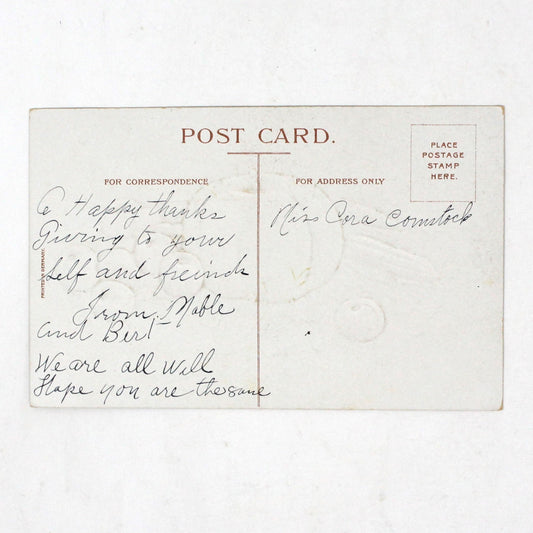 POST CARD.
PLACE
POSTAGE
STAMP
HERE.
FOR CORRESPONDENCE
FOR ADDRESS ONLY
A Happy thanks
Giving to your
self and freinds
From, Mable
and Bert
We are all well
Hope you are the same
Miss Cora Comstock
PRINTED IN GERMANY